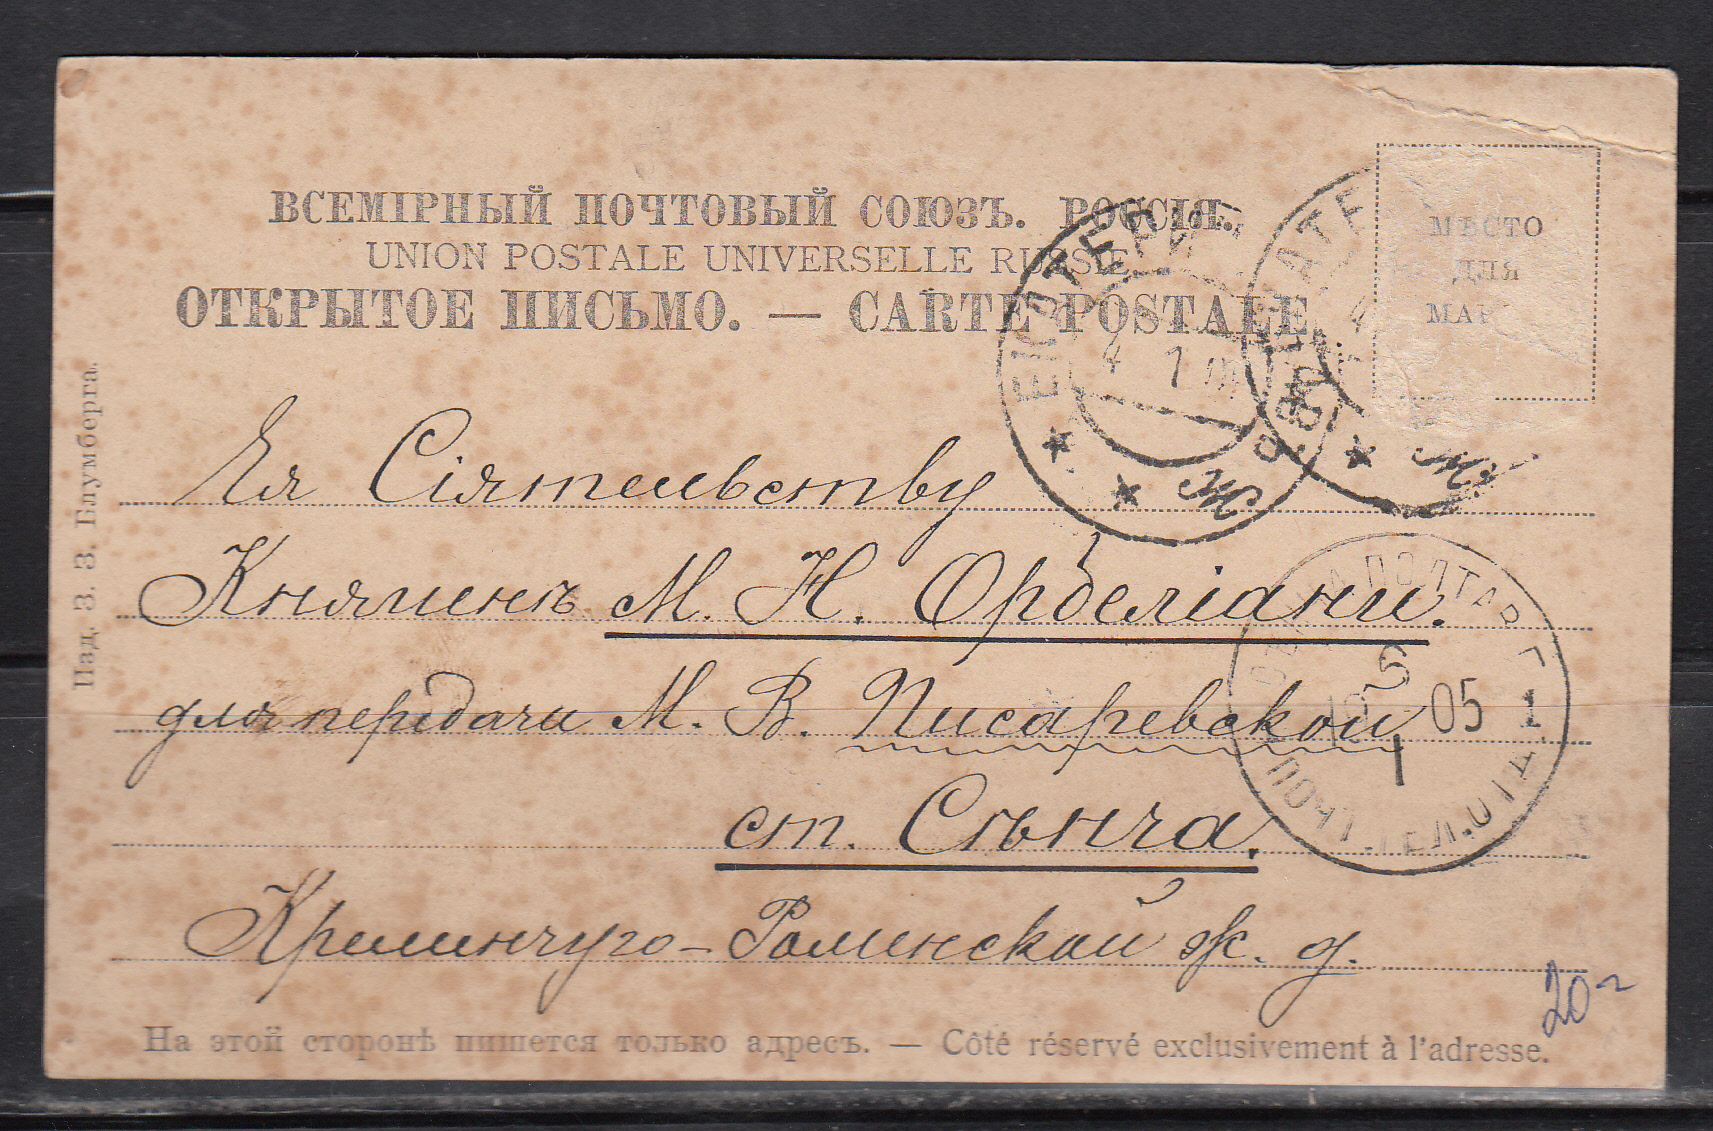 ВСЕМІРНЫЙ ПОЧТОВЫЙ СОЮЗЪ. РОССІЯ.
UNION POSTALE UNIVERSELLE RUSSIE
ОТКРЫТОЕ ПИСЬМО. — CARTE POSTALE
МѢСТО
ДЛЯ
МАР
ЕКАТЕРИ
4 1
КАТЕ
Ея Сіятельству
Княгинѣ М. Н. Орбеліани.
для передачи М. В. Писаревской
ст. Сѣнча.
Кременчуго-Роменской ж. д.
ПОЛТАВ. Г.
5
1
05
ПОЧТ. ТЕЛ. ОТД.
1
Изд. З. З. Блумберга.
На этой сторонѣ пишется только адресъ. — Côté réservé exclusivement à l'adresse.
20-